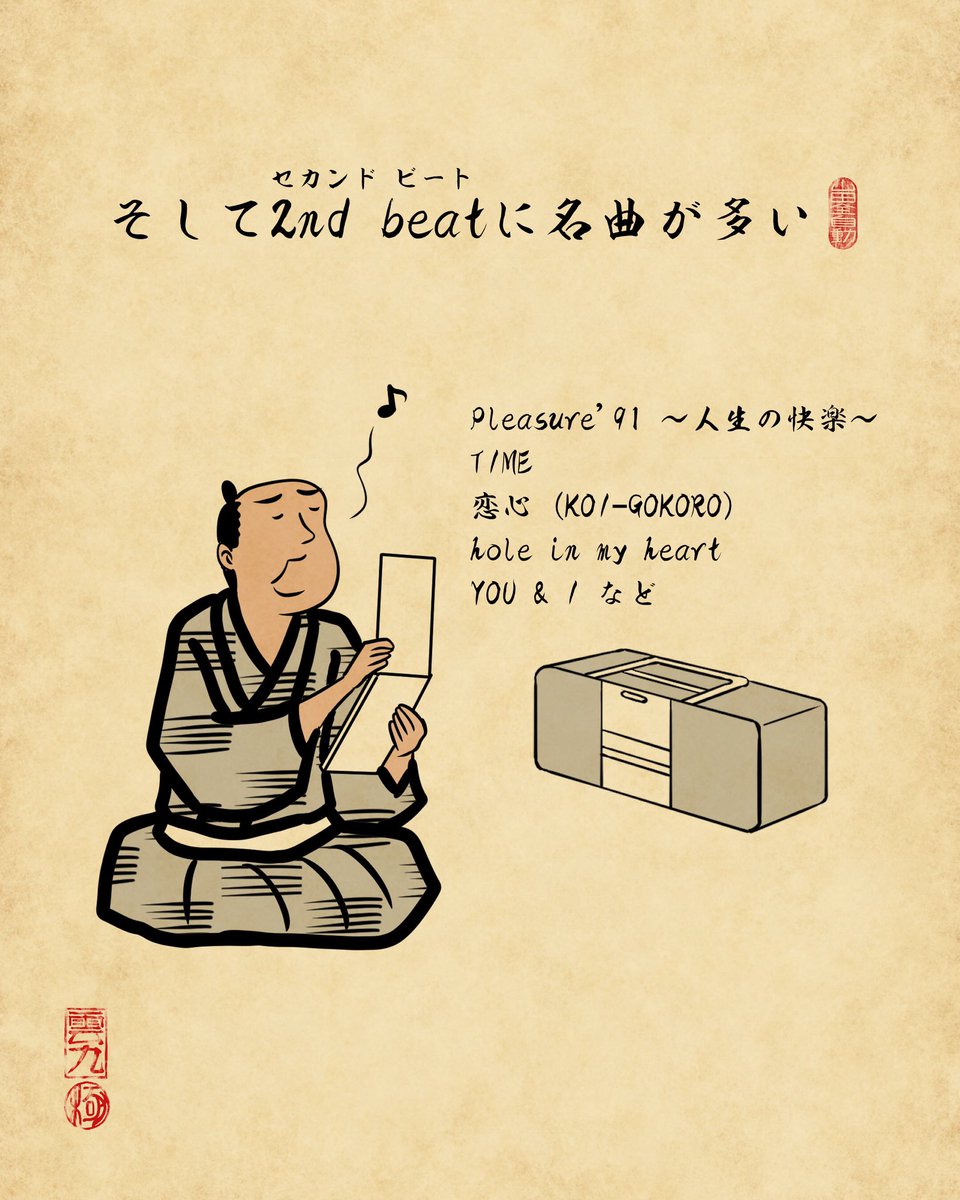 セカンド ビート
そして2nd beatに名曲が多い
Pleasure'91 〜人生の快楽〜
TIME
恋心 (KOI-GOKORO)
hole in my heart
YOU & I など